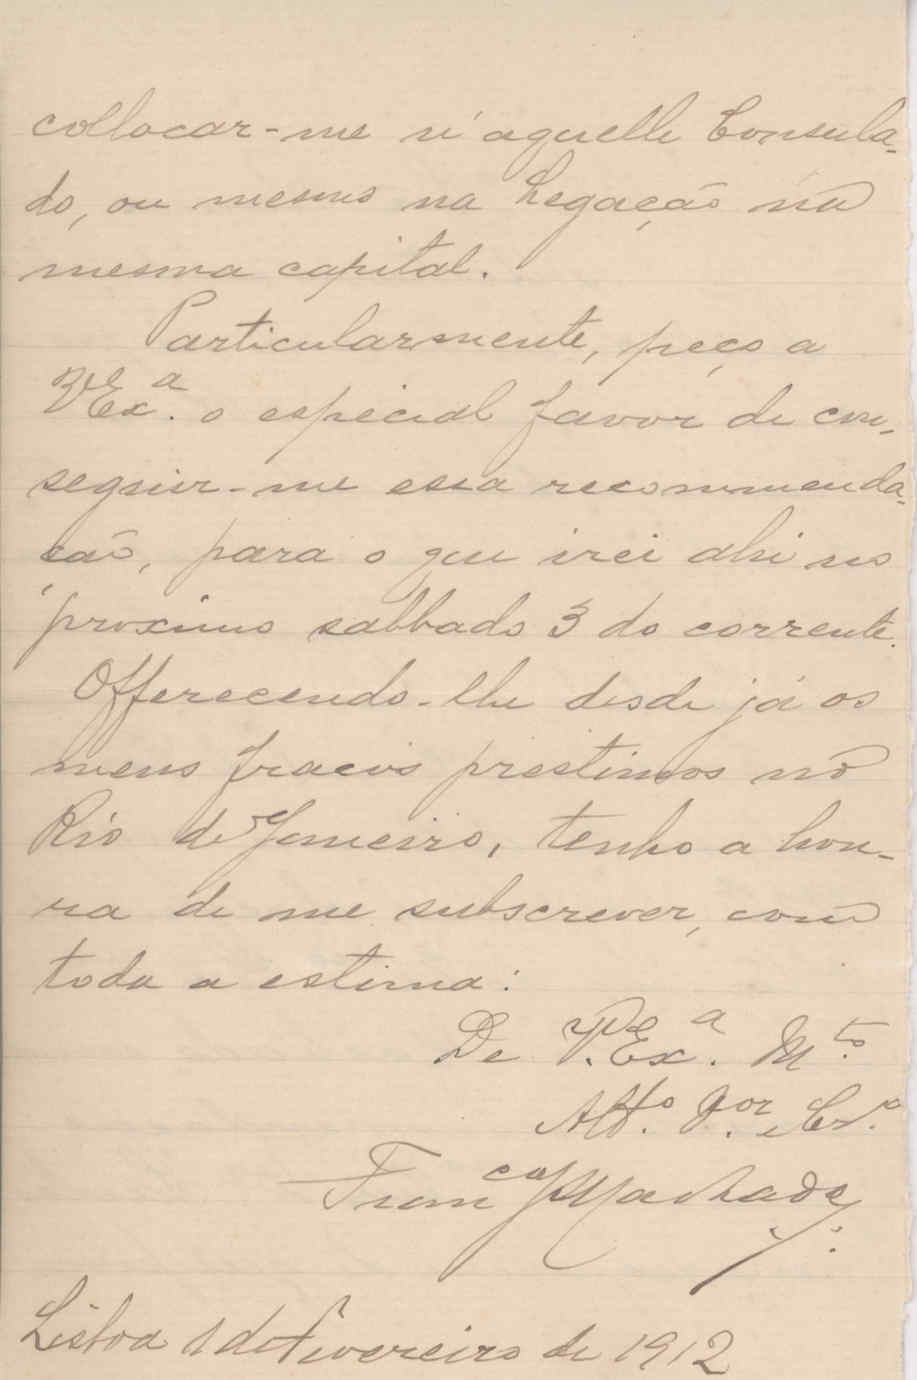 collocar-me n'aquelle Consula-
do, ou mesmo na Legação na
mesma capital.
Particularmente, peço a
V. Ex.ª o especial favor de con-
seguir-me essa recommenda-
ção, para o que irei ahi no
proximo sabbado 3 do corrente.
Offerecendo-lhe desde já os
meus fracos prestimos no
Rio de Janeiro, tenho a hon-
ra de me subscrever, com
toda a estima:
De V. Ex.ª M.to
Att.º V.or e Cr.º
Fran.co Machado
Lisboa 1 de Fevereiro de 1912